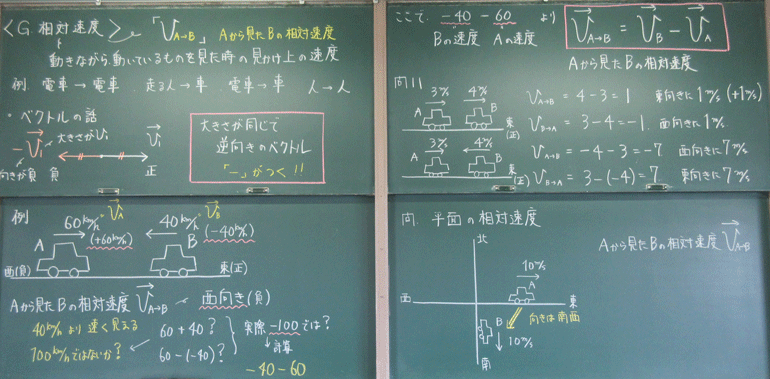 〈G 相対速度〉 「V→A→B」 Aから見たBの相対速度
動きながら、動いているものを見た時の見かけ上の速度
例. 電車→電車. 走る人→車. 電車→車 人→人
・ベクトルの話
大きさがV₁
-V₁ V₁
向きが負 負 正
大きさが同じで
逆向きのベクトル
「-」がつく!!
例
60km/h V_A 40km/h V_B
A (+60km/h) B (-40km/h)
西(負) 東(正)
Aから見たBの相対速度 V_A→B 西向き(負)
40km/hより速く見える 60+40? 実際-100では?
100km/hではないか? 60-(-40)? ↓計算
-40-60
ここで、-40-60 より V_A→B = V_B - V_A
Bの速度 Aの速度
Aから見たBの相対速度
問11
A 3m/s B 4m/s 東(正) V_A→B = 4-3=1 東向きに1m/s (+1m/s)
V_B→A = 3-4=-1. 西向きに1m/s
A 3m/s B 4m/s 東(正) V_A→B = -4-3=-7 西向きに7m/s
V_B→A = 3-(-4)=7 東向きに7m/s
問. 平面の相対速度
北 Aから見たBの相対速度 V_A→B
10m/s
A
西 東
向きは南西
B
10m/s
南